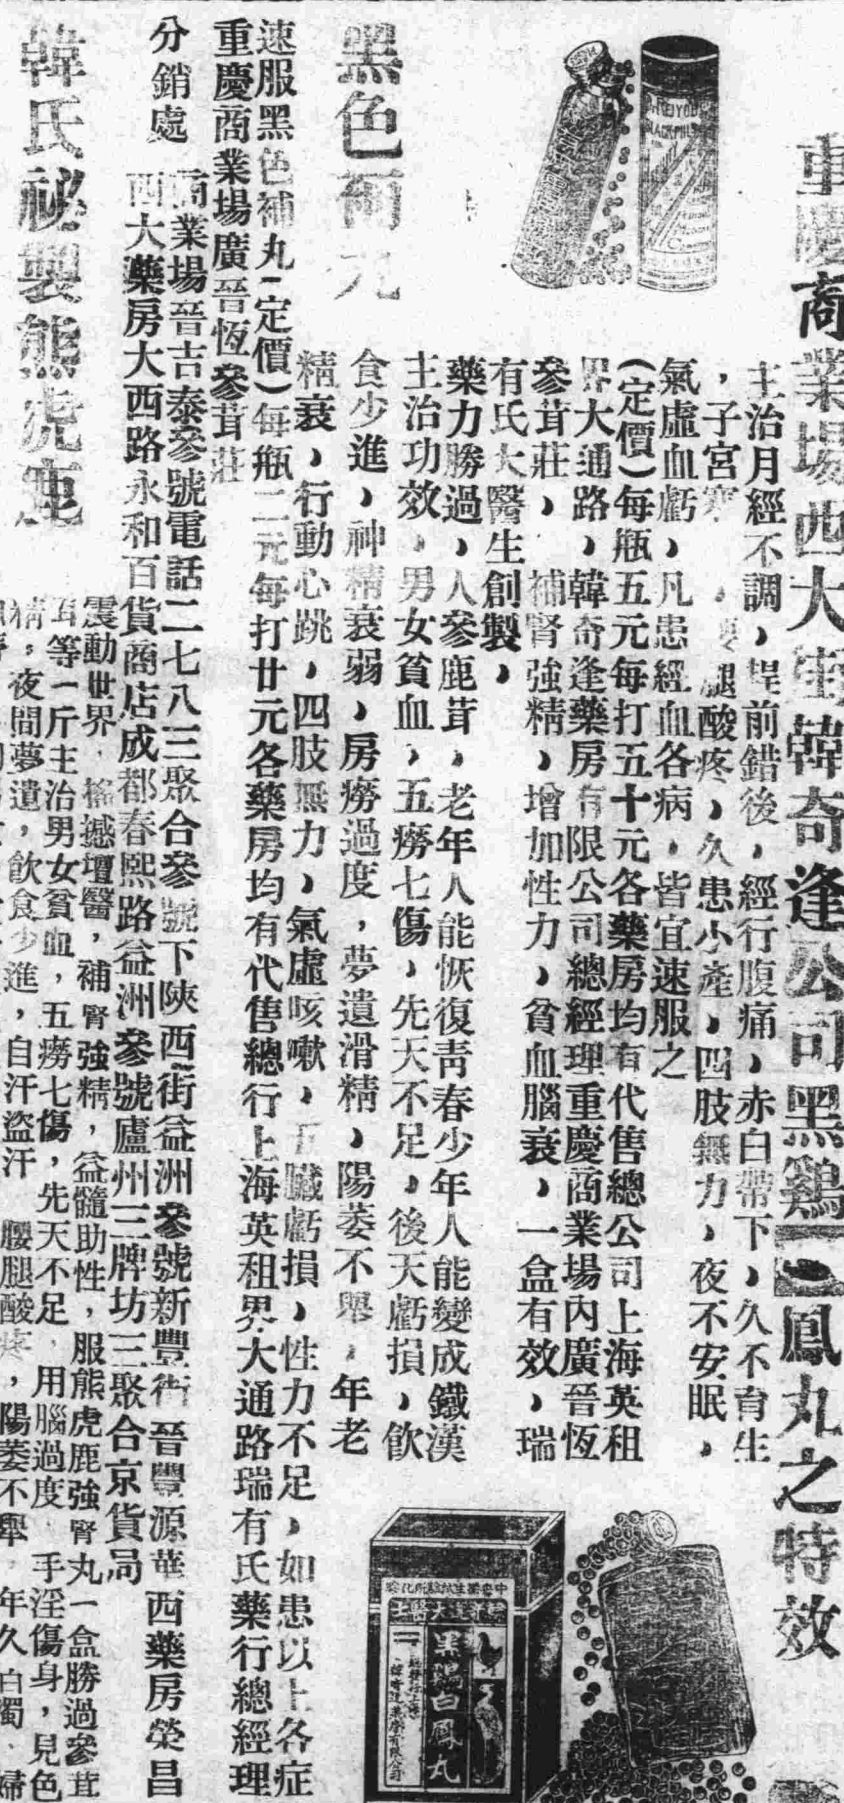 重慶商業場西大街韓奇逢公司黑鷄白鳳丸之特效
主治月經不調，提前錯後，經行腹痛，赤白帶下，久不育生
，子宮寒　，　腿酸疼，久患小產，四肢無力，夜不安眠，
氣虛血虧，凡患經血各病，皆宜速服之
（定價）每瓶五元每打五十元各藥房均有代售總公司上海英租
界大通路，韓奇逢藥房有限公司總經理重慶商業場內廣晉恆
參茸莊，補腎強精，增加性力，貧血腦衰，一盒有效，瑞
有氏大醫生創製，
藥力勝過，人參鹿茸，老年人能恢復靑春少年人能變成鐵漢
主治功效，男女貧血，五癆七傷，先天不足，後天虧損，飲
食少進，神精衰弱，房癆過度，夢遺滑精，陽萎不舉，年老
精衰，行動心跳，四肢無力，氣虛咳嗽，五臟虧損，性力不足，如患以上各症
黑色補丸
速服黑色補丸（定價）每瓶二元每打廿元各藥房均有代售總行上海英租界大通路瑞有氏藥行總經理
重慶商業場廣晉恆參茸莊
分銷處
商業場晉吉泰參號電話二七八三聚合參號下陝西街益洲參號新豐街晉豐源華西藥房榮昌
西大藥房大西路永和百貨商店成都春熙路益洲參號廬州三牌坊三聚合京貨局
韓氏祕製熊虎鹿
震動世界，搖撼壇醫，補腎強精，益髓助性，服熊虎鹿強腎丸一盒勝過參茸
等一斤主治男女貧血，五癆七傷，先天不足，用腦過度，手淫傷身，見色
精，夜間夢遺，飲食少進，自汗盜汗　腰腿酸疼，陽萎不舉，年久白濁，婦
黑鷄白鳳丸